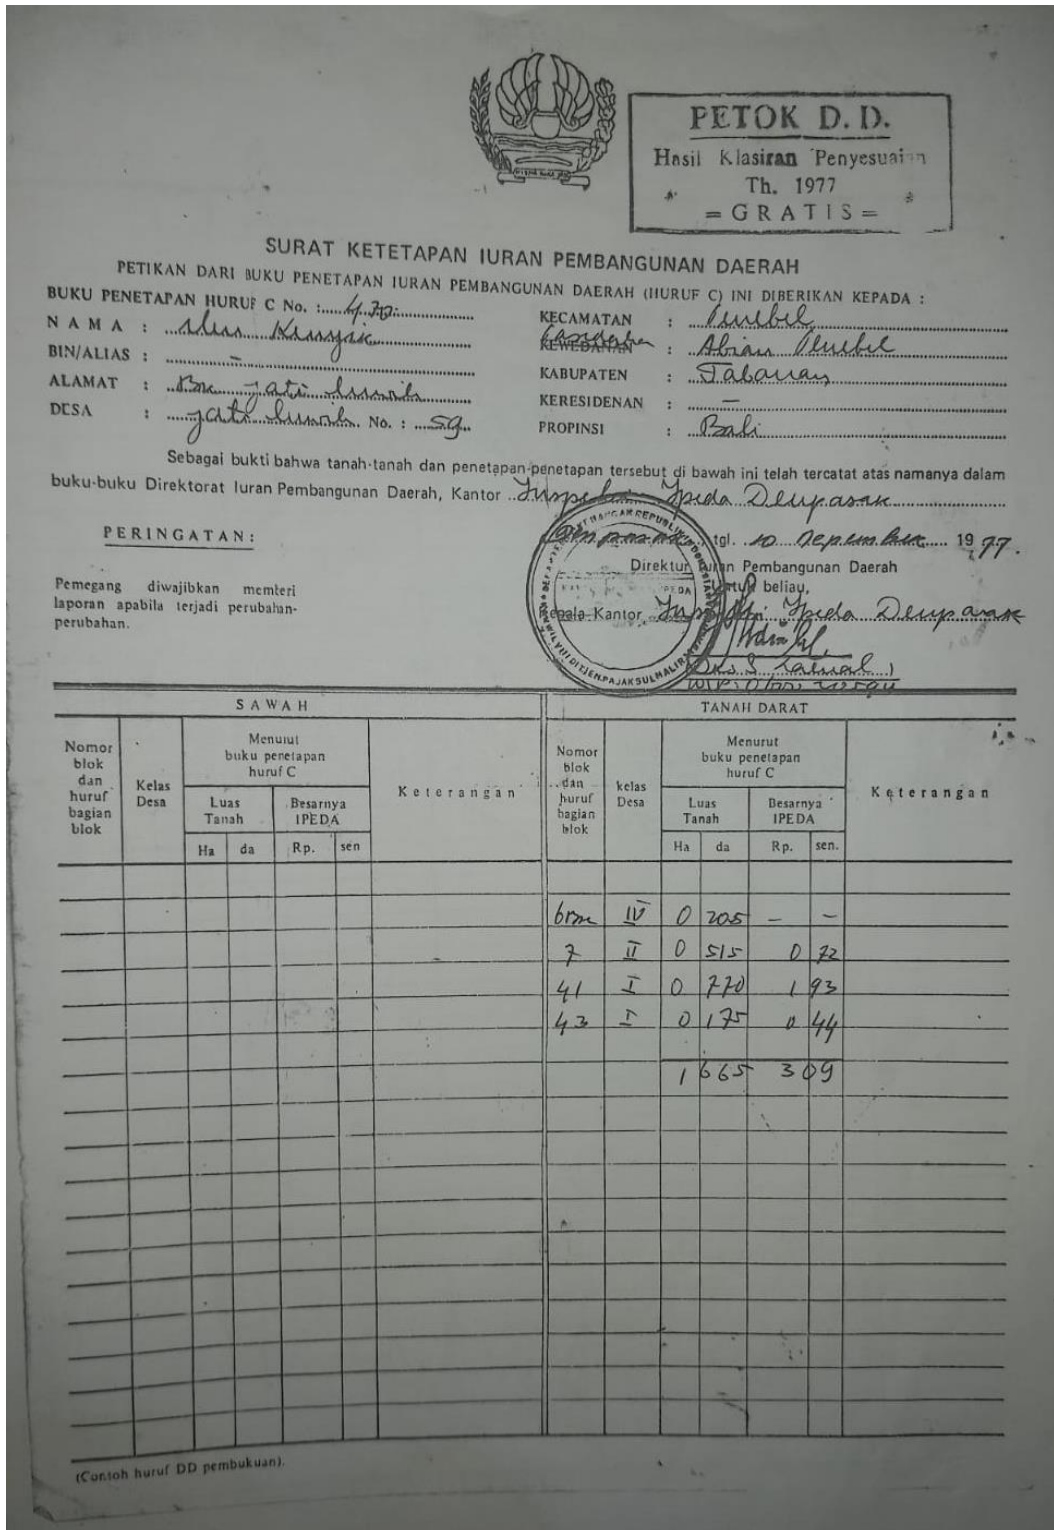 PETOK D. D.
Hasil Klasiran Penyesuaian
Th. 1977
= GRATIS =
SURAT KETETAPAN IURAN PEMBANGUNAN DAERAH
PETIKAN DARI BUKU PENETAPAN IURAN PEMBANGUNAN DAERAH (HURUF C) INI DIBERIKAN KEPADA :
BUKU PENETAPAN HURUF C No. : 430
NAMA :
BIN/ALIAS : –
ALAMAT : Br. jati luwih
DESA : jati luwih No. : 59
KECAMATAN : Penebel
KEWEDANAN : Abian Penebel
KABUPATEN : Tabanan
KERESIDENAN : –
PROPINSI : Bali
Sebagai bukti bahwa tanah-tanah dan penetapan-penetapan tersebut di bawah ini telah tercatat atas namanya dalam
buku-buku Direktorat Iuran Pembangunan Daerah, Kantor Inspeksi Ipeda Denpasar
PERINGATAN :
Pemegang diwajibkan memberi
laporan apabila terjadi perubahan-
perubahan.
Denpasar tgl. 10 Nepember 1977.
Direktur Iuran Pembangunan Daerah
Untuk beliau,
Kepala Kantor Inspeksi Ipeda Denpasar
SAWAH
Nomor blok dan huruf bagian blok
Kelas Desa
Menurut buku penetapan huruf C
Luas Tanah
Besarnya IPEDA
Keterangan
Ha da Rp. sen
TANAH DARAT
Nomor blok dan huruf bagian blok
kelas Desa
Menurut buku penetapan huruf C
Luas Tanah
Besarnya IPEDA
Keterangan
Ha da Rp. sen.
IV 0 205 – –
7 II 0 515 0 72
41 I 0 770 1 93
43 I 0 175 0 44
1 665 3 09
(Contoh huruf DD pembukuan).